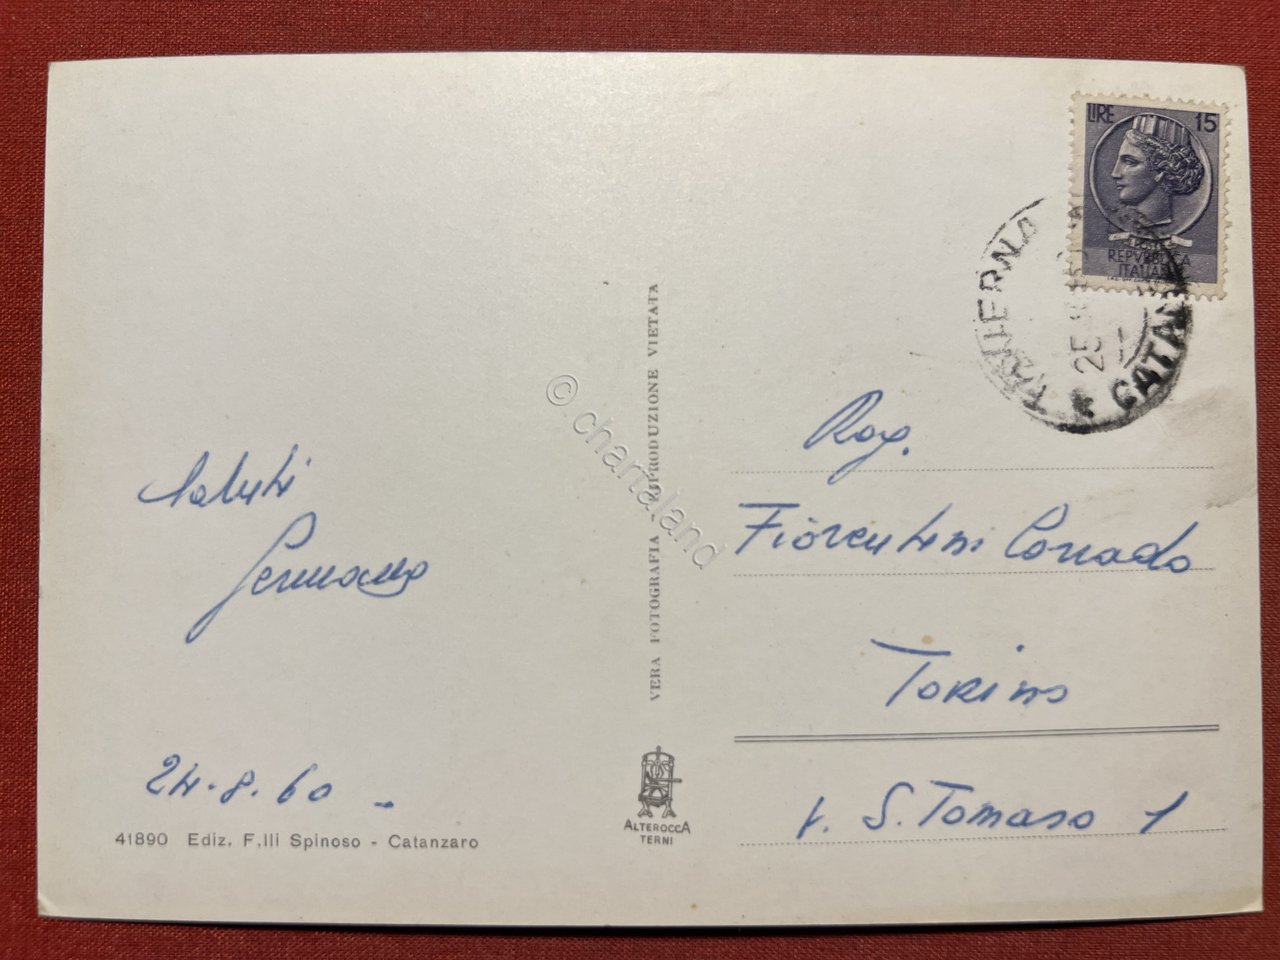 LIRE 15
REPVBBLICA
ITALIANA
TAVERNA
25
CATAN
Saluti
Germano
24.8.60 -
41890 Ediz. F.lli Spinoso - Catanzaro
VERA FOTOGRAFIA - RIPRODUZIONE VIETATA
© chartaland
ALTEROCCA
TERNI
Rag.
Fiorentini Corrado
Torino
v. S. Tomaso 1